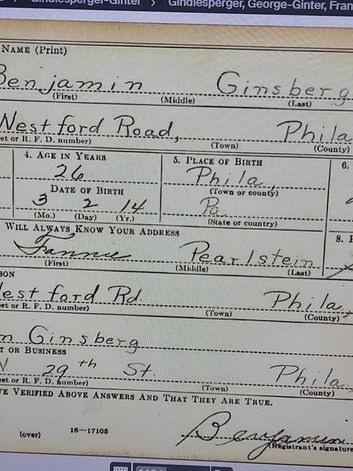 Gindlesperger-Ginter > Gindlesperger, George-Ginter, Fran
NAME (Print)
Benjamin Ginsberg
(First) (Middle) (Last)
Westford Road, Phila
et or R. F. D. number) (Town) (County)
4. AGE IN YEARS 5. PLACE OF BIRTH 6.
26 Phila,
DATE OF BIRTH (Town or county)
3 2 14 Pa.
(Mo.) (Day) (Yr.) (State or country)
WILL ALWAYS KNOW YOUR ADDRESS 8.
Fannie Pearlstein
(First) (Middle) (Last)
SON
estford Rd. Phila,
et or R. F. D. number) (Town) (County)
m Ginsberg
T OR BUSINESS
29th St. Phila
et or R. F. D. number) (Town) (County)
VE VERIFIED ABOVE ANSWERS AND THAT THEY ARE TRUE.
Benjamin
(over) 16—17105 (Registrant's signature